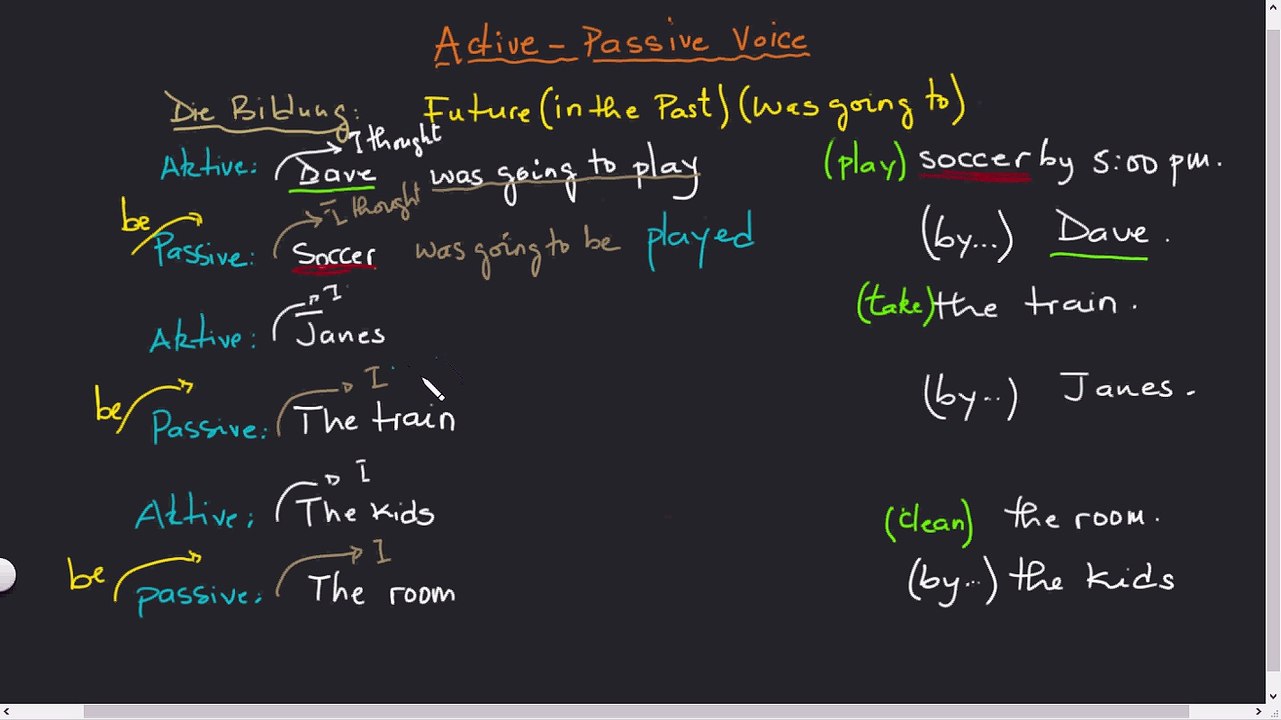 Active - Passive Voice
Die Bildung: Future (in the Past) (was going to)
I thought
Aktive: Dave was going to play (play) soccer by 5:00 pm.
be I thought
Passive: Soccer was going to be played (by...) Dave.
I
Aktive: Janes (take) the train.
be I
Passive: The train (by..) Janes.
I
Aktive: The kids (clean) the room.
be I
passive: The room (by...) the kids